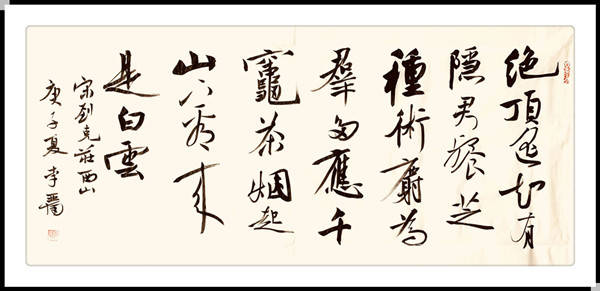 绝顶遥知有
隐君餐芝
種術麝為
羣多應午
竈茶烟起
山下看来
是白雲
宋刘克莊西山
庚子夏李